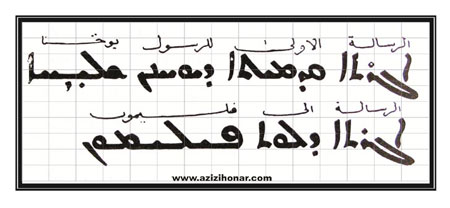 الرسالة الاولى للرسول يوحنا
ܐܓܪܬܐ ܩܕܡܝܬܐ ܕܝܘܚܢܢ ܫܠܝܚܐ
الرسالة الى فليمون
ܐܓܪܬܐ ܕܠܘܬ ܦܝܠܝܡܘܢ
www.azizihonar.com